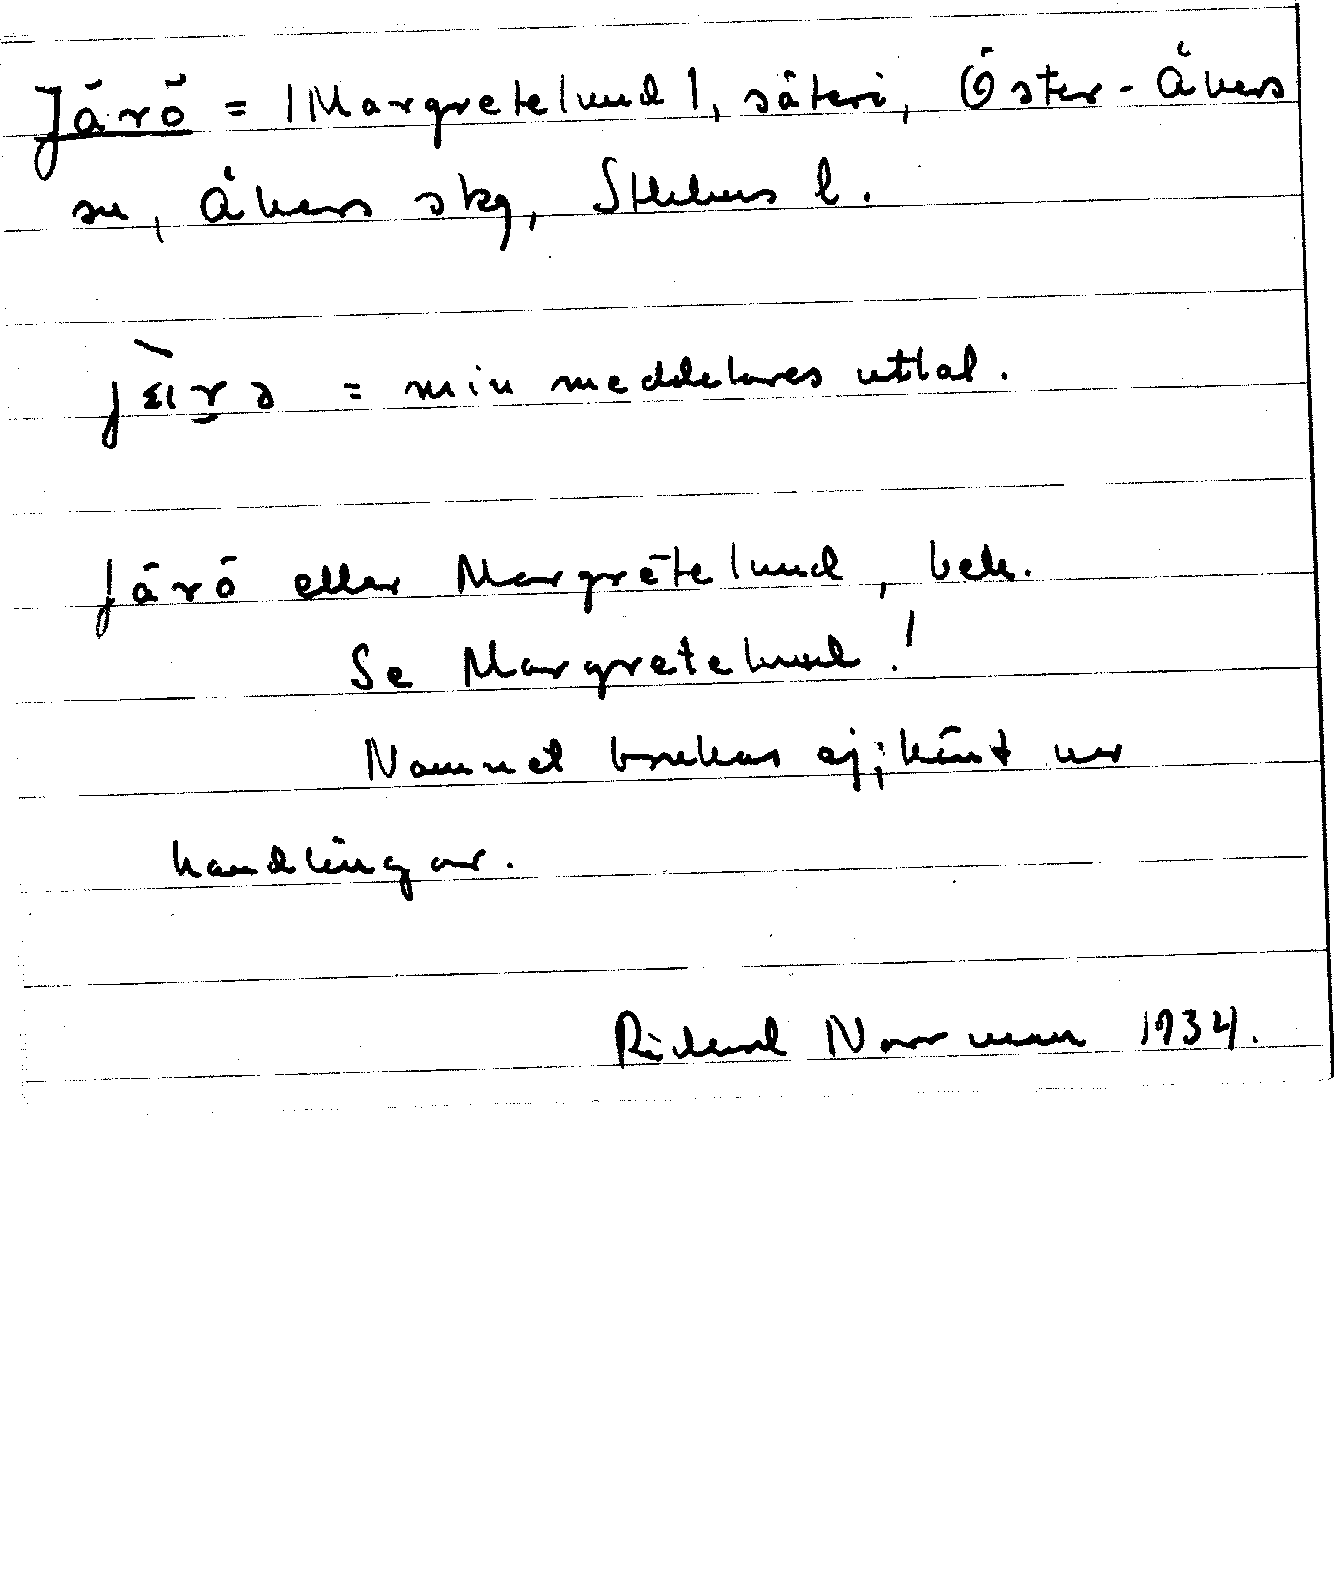 Järö = |Margretelund|, säteri, Öster-Åkers
sn, Åkers skg, Sthlms l.
= min meddelares uttal.
Järö eller Margretelund, beb.
Se Margretelund!
Namnet brukas ej; känt ur
handlingar.
Rickard Norrman 1934.